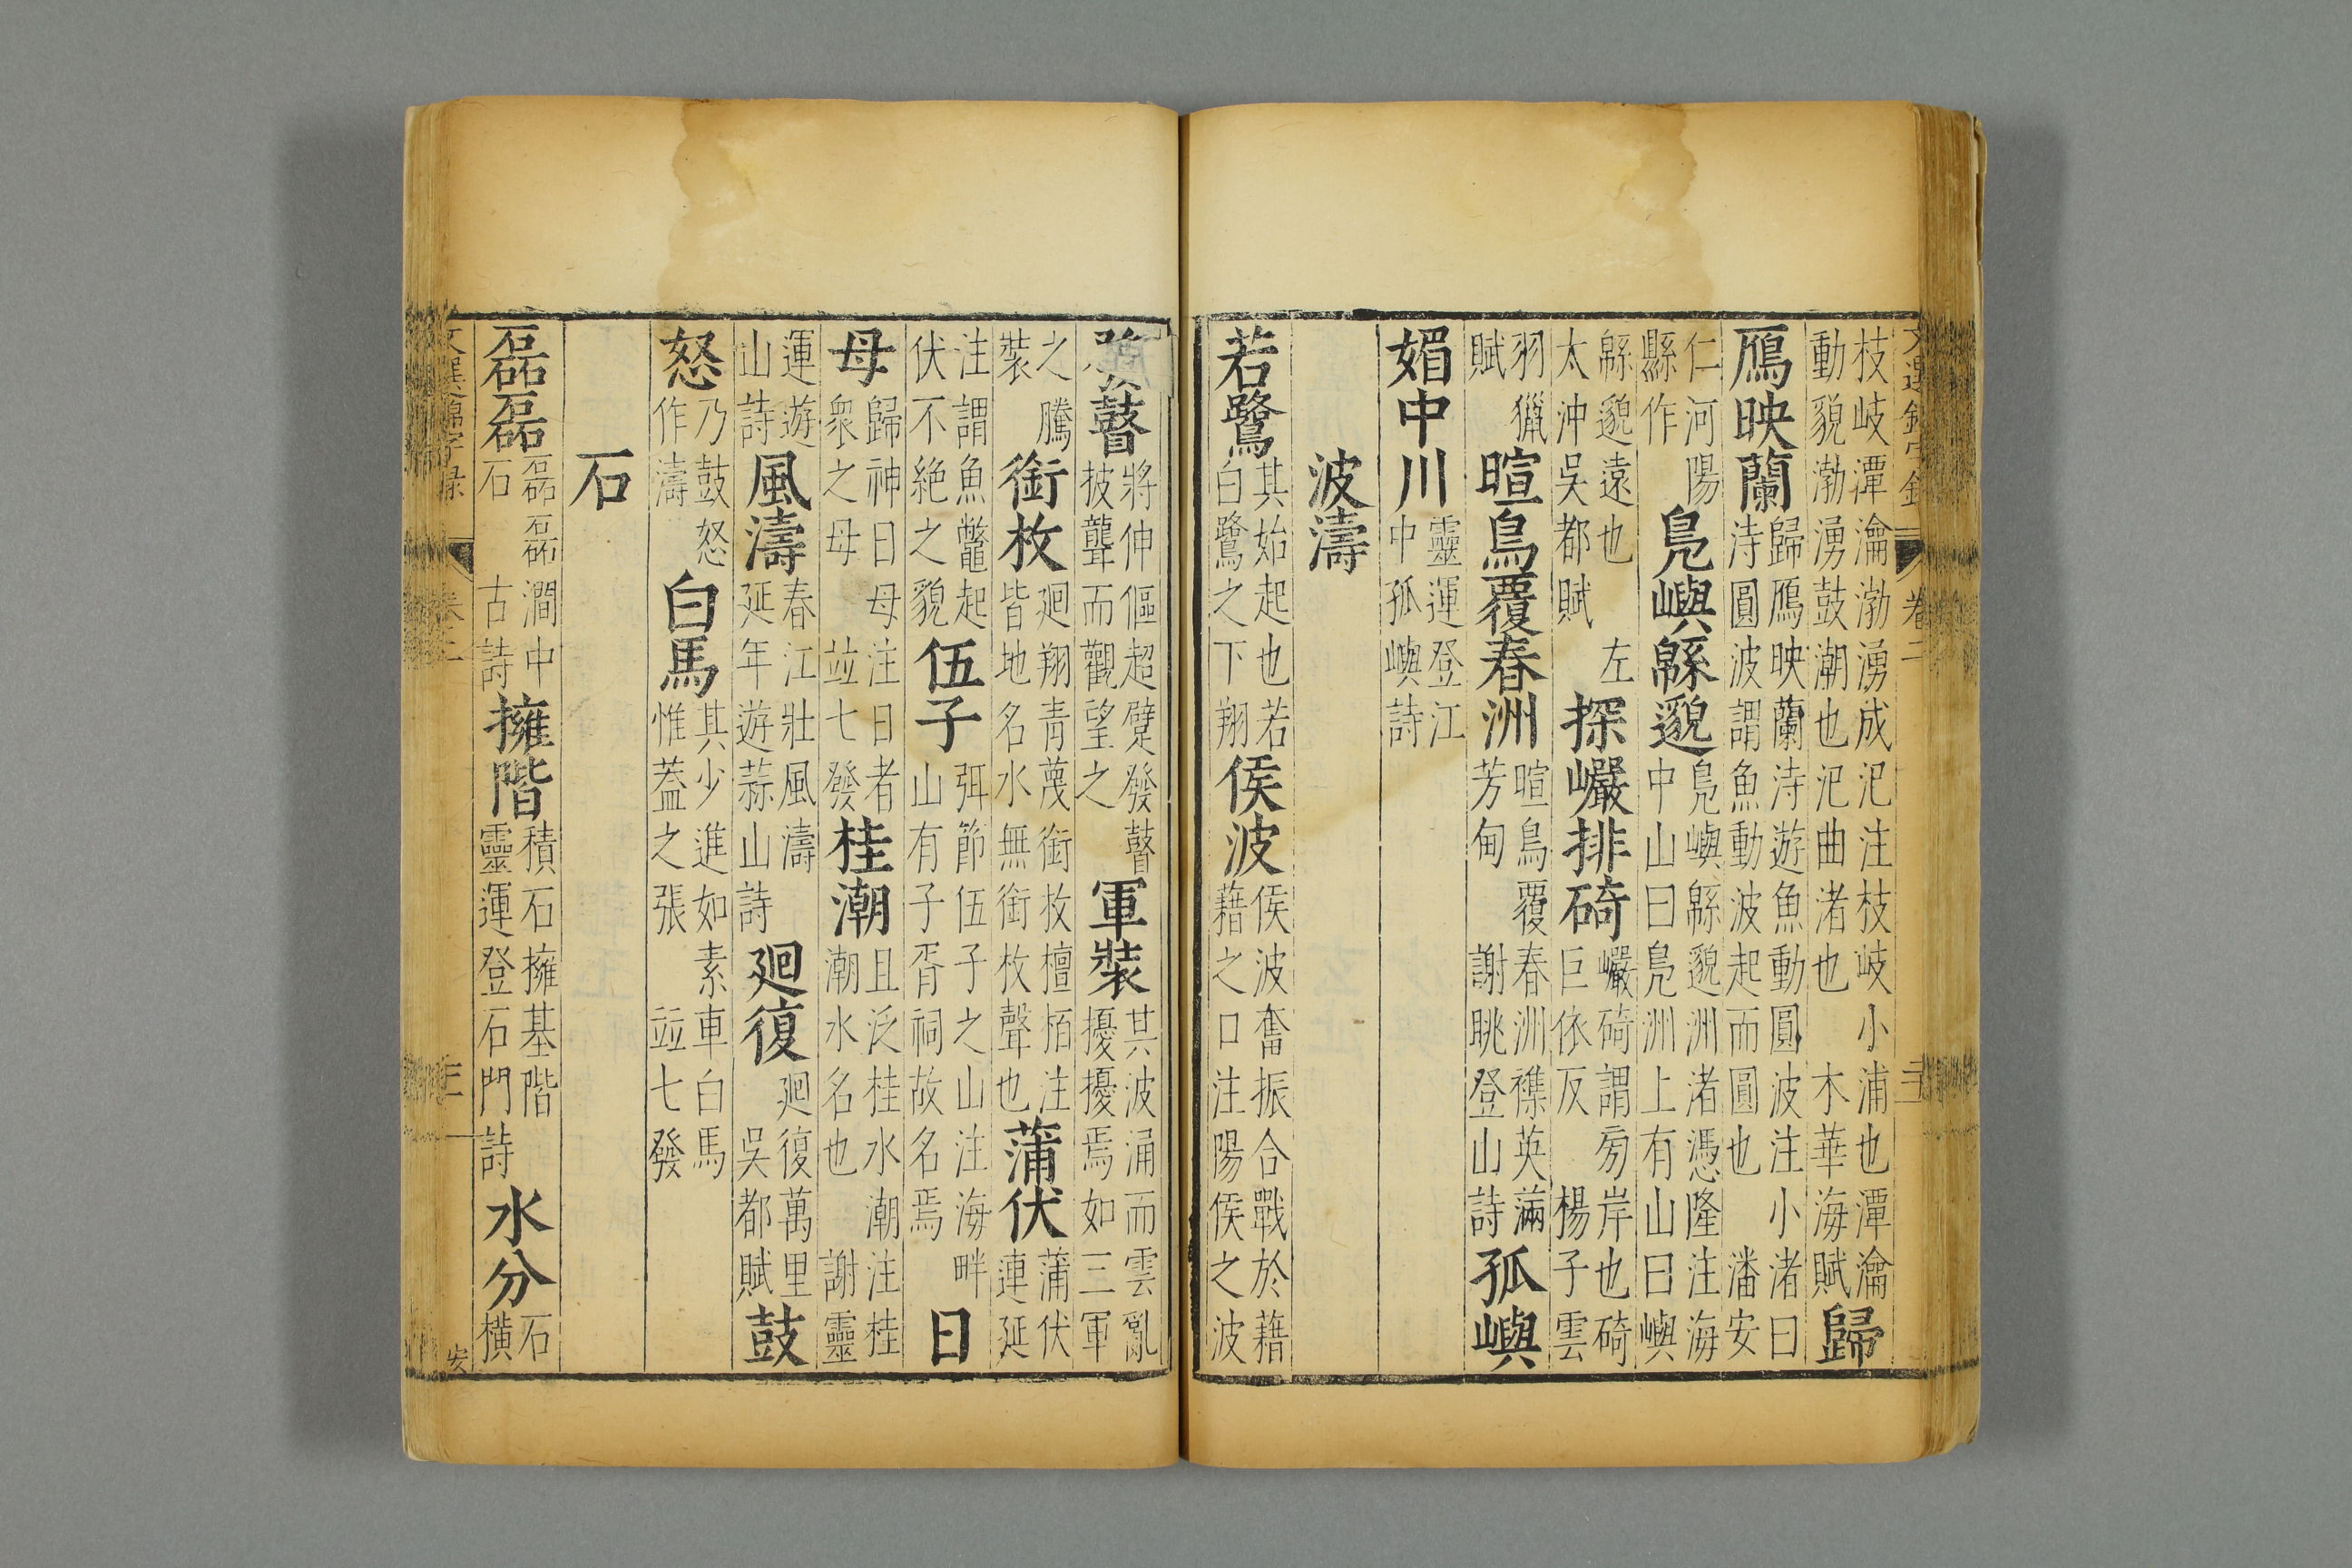 文選錦字錄 卷二
枝岐潭瀹渤湧成汜注枝岐小浦也潭瀹
動貌渤湧鼓潮也汜曲渚也 木華海賦
歸
鴈映蘭
歸鴈映蘭洔遊魚動圓波注小渚曰
洔圓波謂魚動波起而圓也 潘安
仁河陽
縣作
鳧嶼緜邈
鳧嶼緜邈洲渚憑隆注海
中山曰鳧洲上有山曰嶼
緜邈遠也 左
太沖吳都賦
探巗排碕
巗碕謂 岸也碕
巨依反 楊子雲
羽獵
賦
暄鳥覆春洲
暄鳥覆春洲襍英滿
芳甸 謝眺登山詩
孤嶼
媚中川
靈運登江
中孤嶼詩
波濤
若鷺
其始起也若
白鷺之下翔
侯波
侯波奮振合戰於藉
藉之口注陽侯之波
瞽
將伸傴超躄發瞽
披聾而觀望之
軍裝
其波涌而雲亂
擾擾焉如三軍
之騰
裝
銜枚
廻翔青蔑銜枚檀栢注
皆地名水無銜枚聲也
蒲伏
蒲伏
連延
注謂魚鼈起
伏不絶之貌
伍子
弭節伍子之山注海畔
山有子胥祠故名焉
日
母
歸神日母注日者
衆之母 竝七發
桂潮
且泛桂水潮注桂
潮水名也 謝靈
運遊
山詩
風濤
春江壯風濤
延年遊蒜山詩
廻復
廻復萬里
吳都賦
鼓
怒
乃鼓怒
作濤
白馬
其少進如素車白馬
惟蓋之張 竝七發
石
磊磊
磊磊澗中
石 古詩
擁階
積石擁基階
靈運登石門詩
水分
石
橫
文選錦字錄 卷二
安